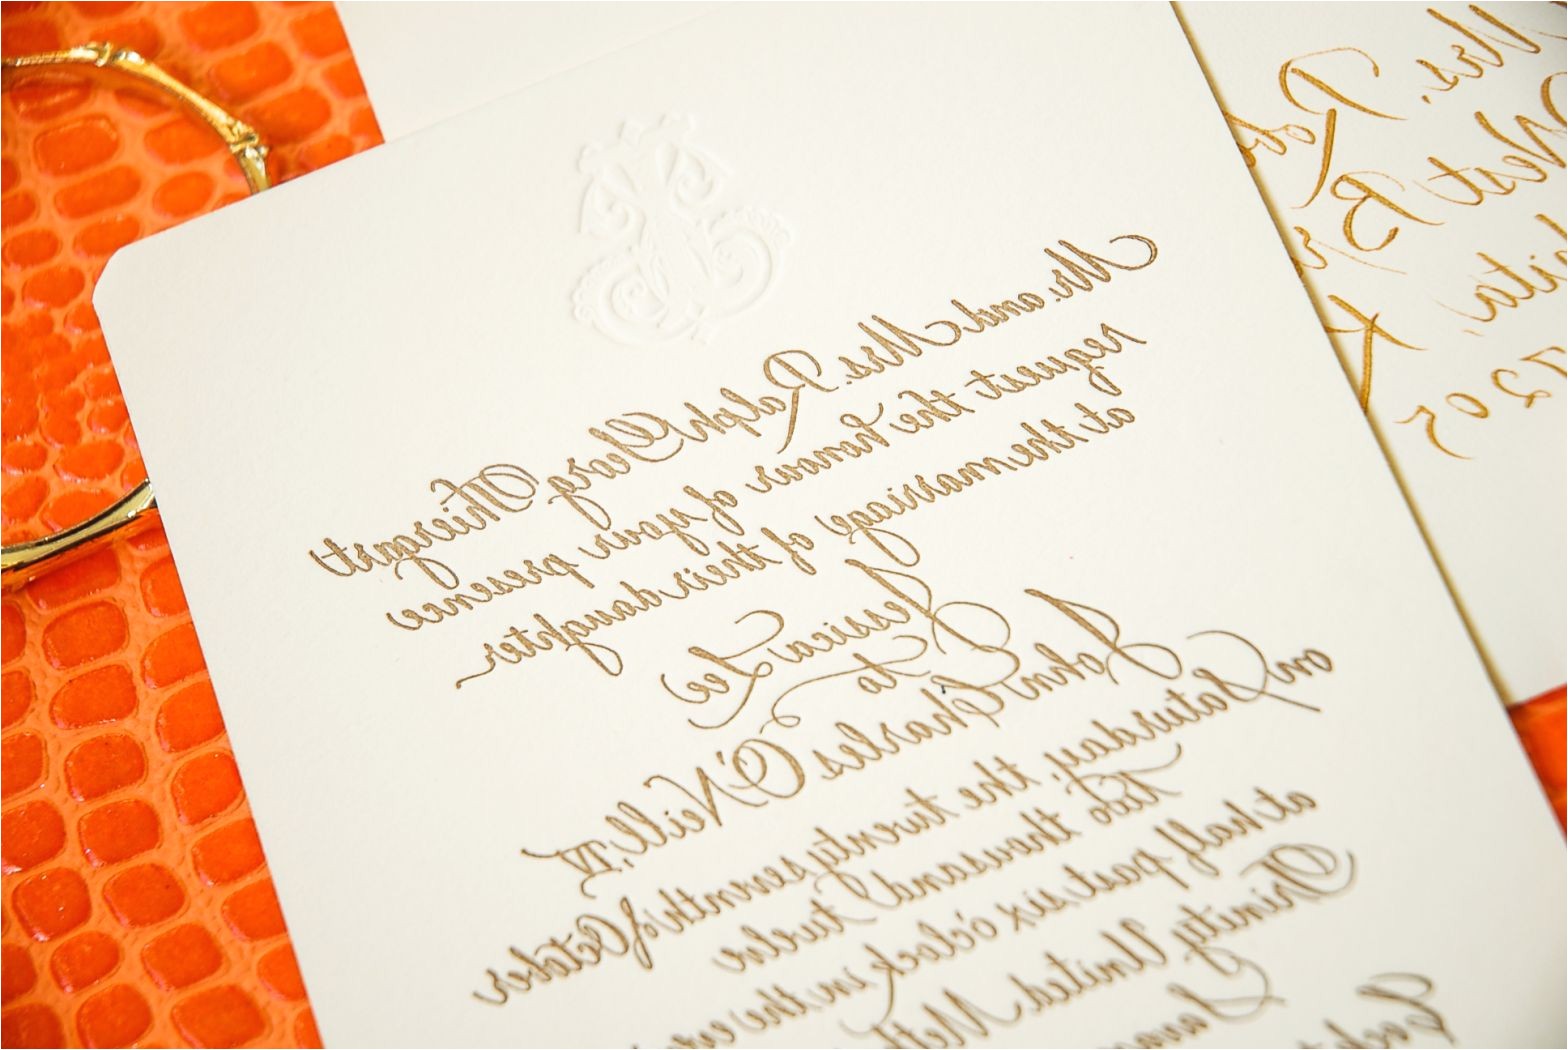 Mr. and Mrs. Ralph Georg Thiergart
request the honour of your presence
at the marriage of their daughter
Jessica Lee
to
John Charles O'Neill, IV
on Saturday, the twenty seventh of October
two thousand twelve
at half past six o'clock in the
Trinity United
Mrs.
West